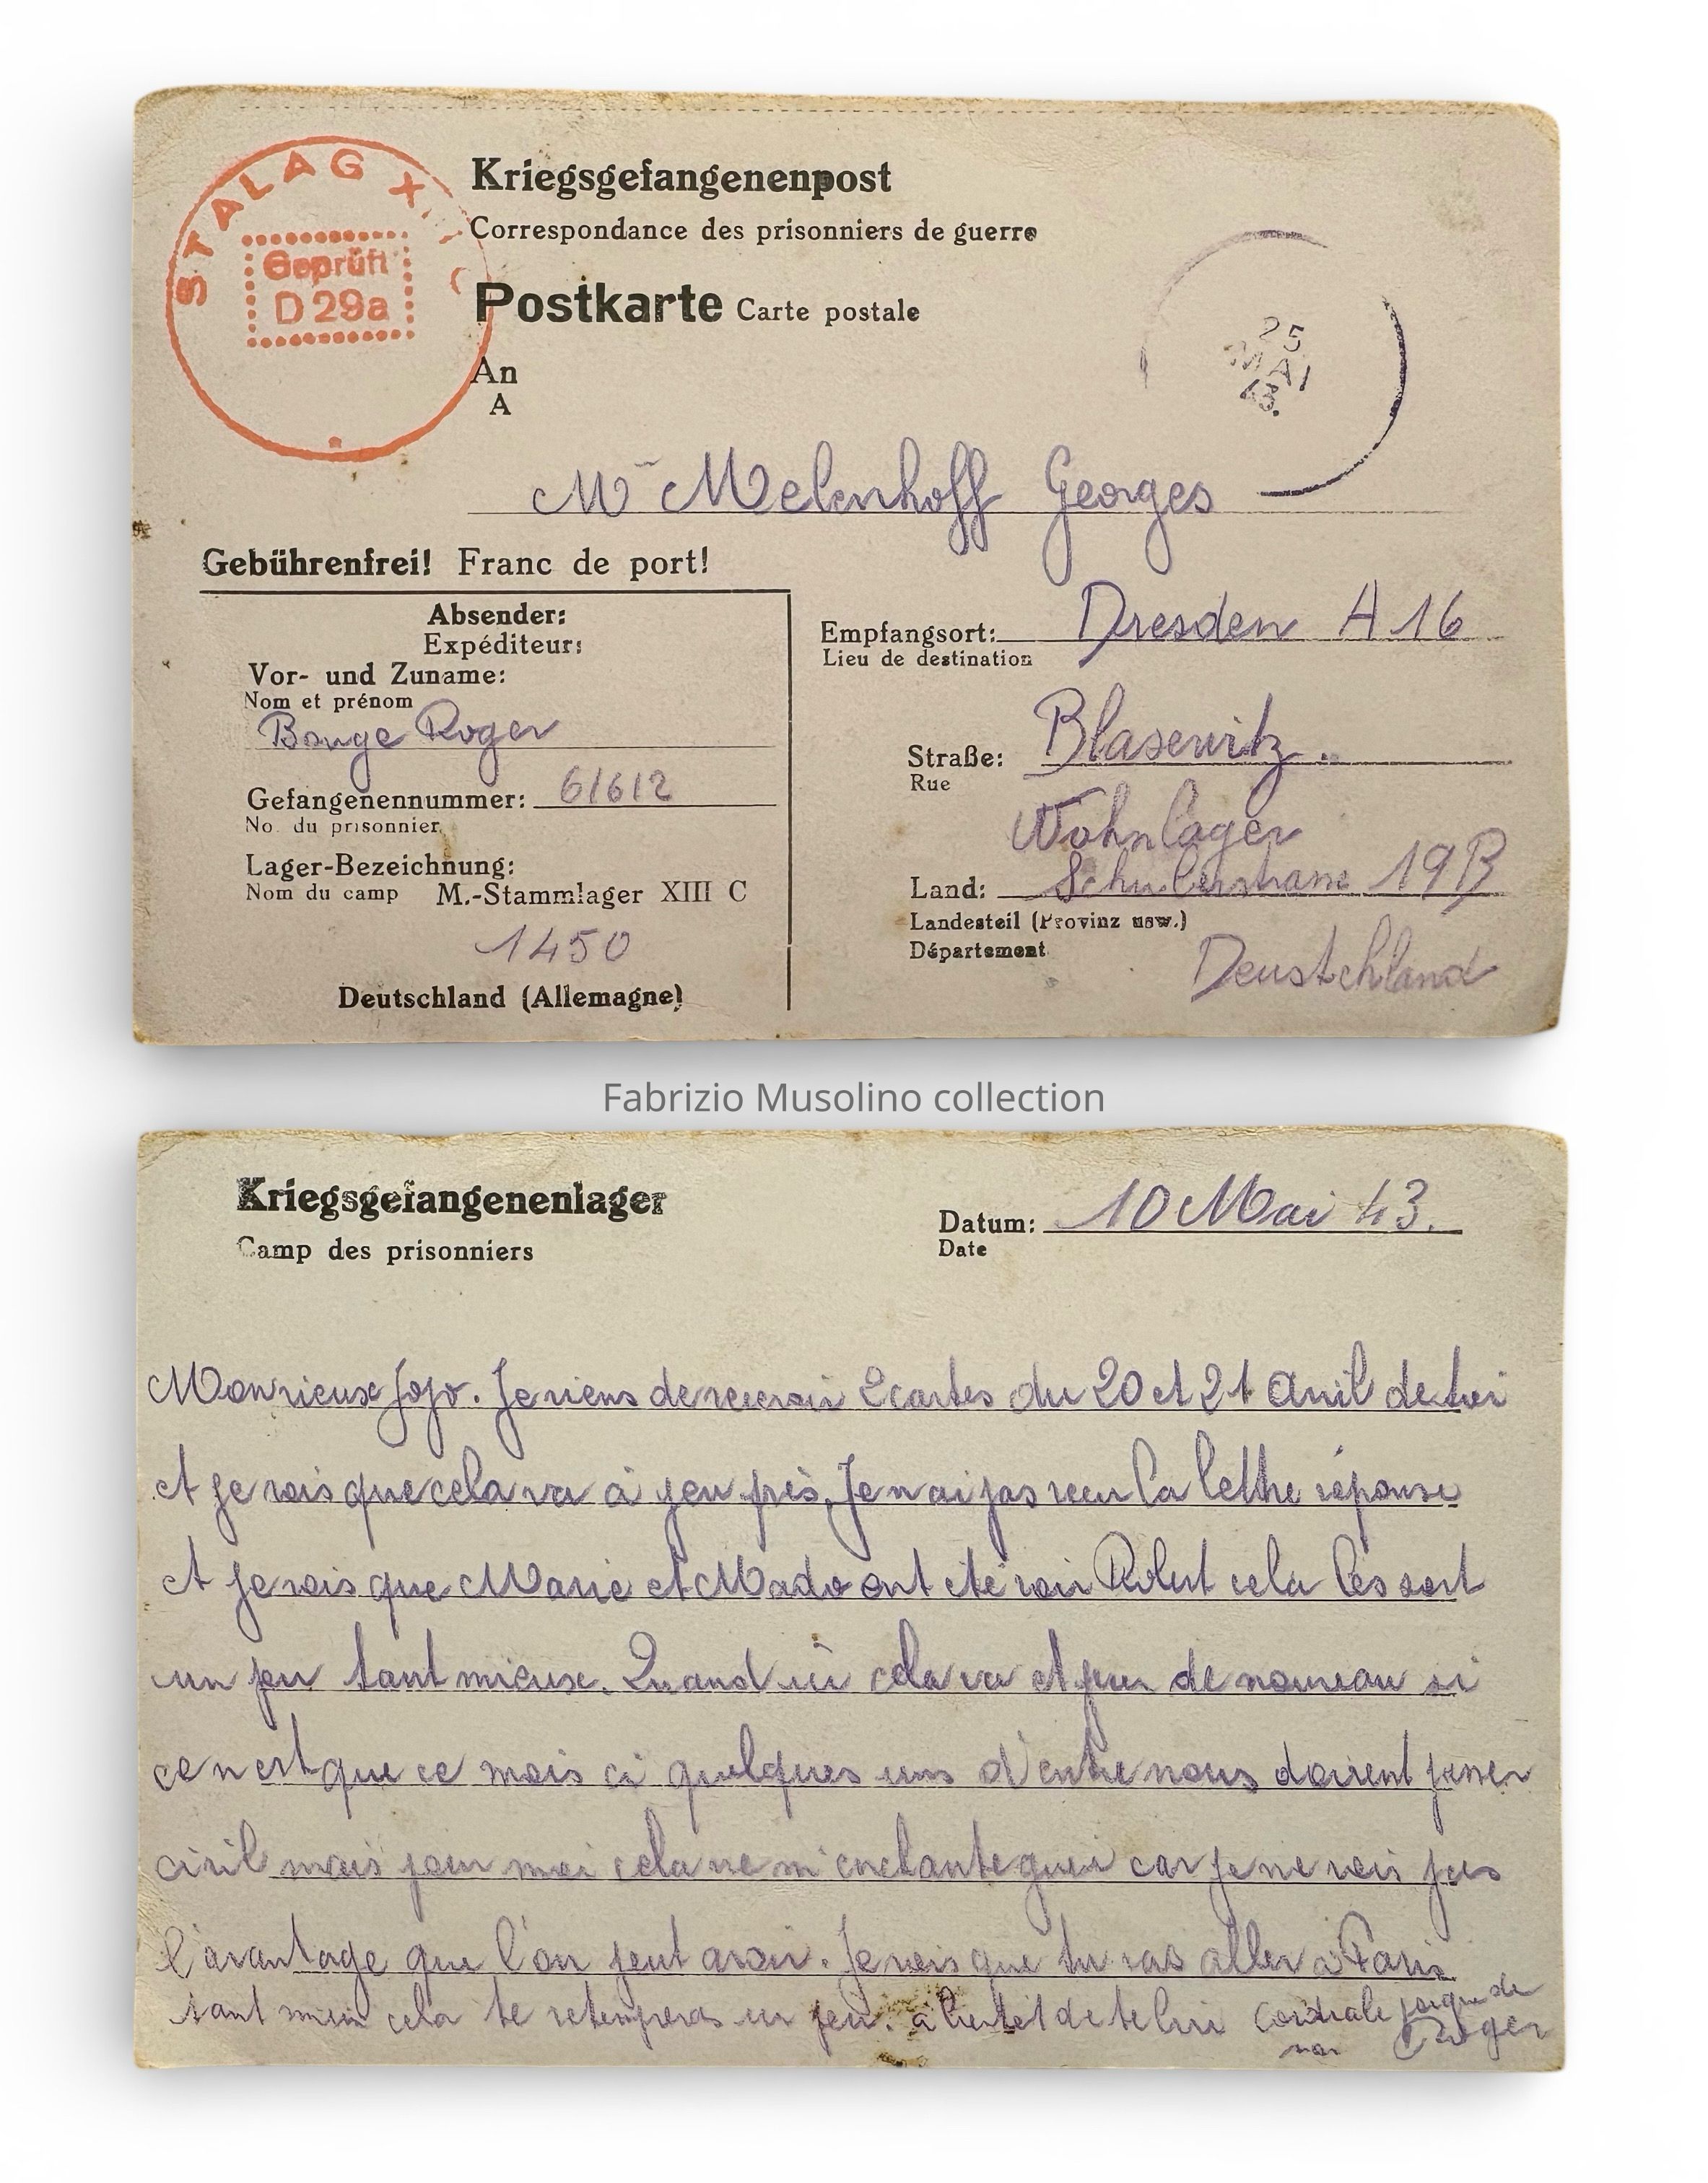 STALAG X
Geprüft
D 29a
Kriegsgefangenenpost
Correspondance des prisonniers de guerre
Postkarte Carte postale
An
A
25
MAI
43.
Mr Melenhoff Georges
Gebührenfrei! Franc de port!
Absender:
Expéditeur:
Vor- und Zuname:
Nom et prénom
Bouge Roger
Gefangenennummer: 61612
No. du prisonnier
Lager-Bezeichnung:
Nom du camp M.-Stammlager XIII C
1450
Deutschland (Allemagne)
Empfangsort: Dresden A 16
Lieu de destination
Straße: Blasewitz
Rue
Wohnlager
Land: 19 B
Landesteil (Provinz usw.)
Département
Deustchland
Fabrizio Musolino collection
Kriegsgefangenenlager
Camp des prisonniers
Datum: 10 Mai 43.
Date
Mon vieux Jojo. Je viens de recevoir 2 cartes du 20 et 21 Avril de toi
et je vois que cela va à peu près. Je n ai pas recu la lettre réponse
et je vois que Marie et Mado ont été voir Robert cela les sort
un peu tant mieux. Quand ici cela va et peu de nouveau si
ce n est que ce mois ci quelques uns d'entre nous doivent passer
civil mais pour moi cela ne m'enchante guei car je ne vois pas
l'avantage que l'on peut avoir. Je vois que tu vas aller à Paris
tant mieux cela te retemperas un peu. a bientot de te lire Cordiale poigne de
main Roger